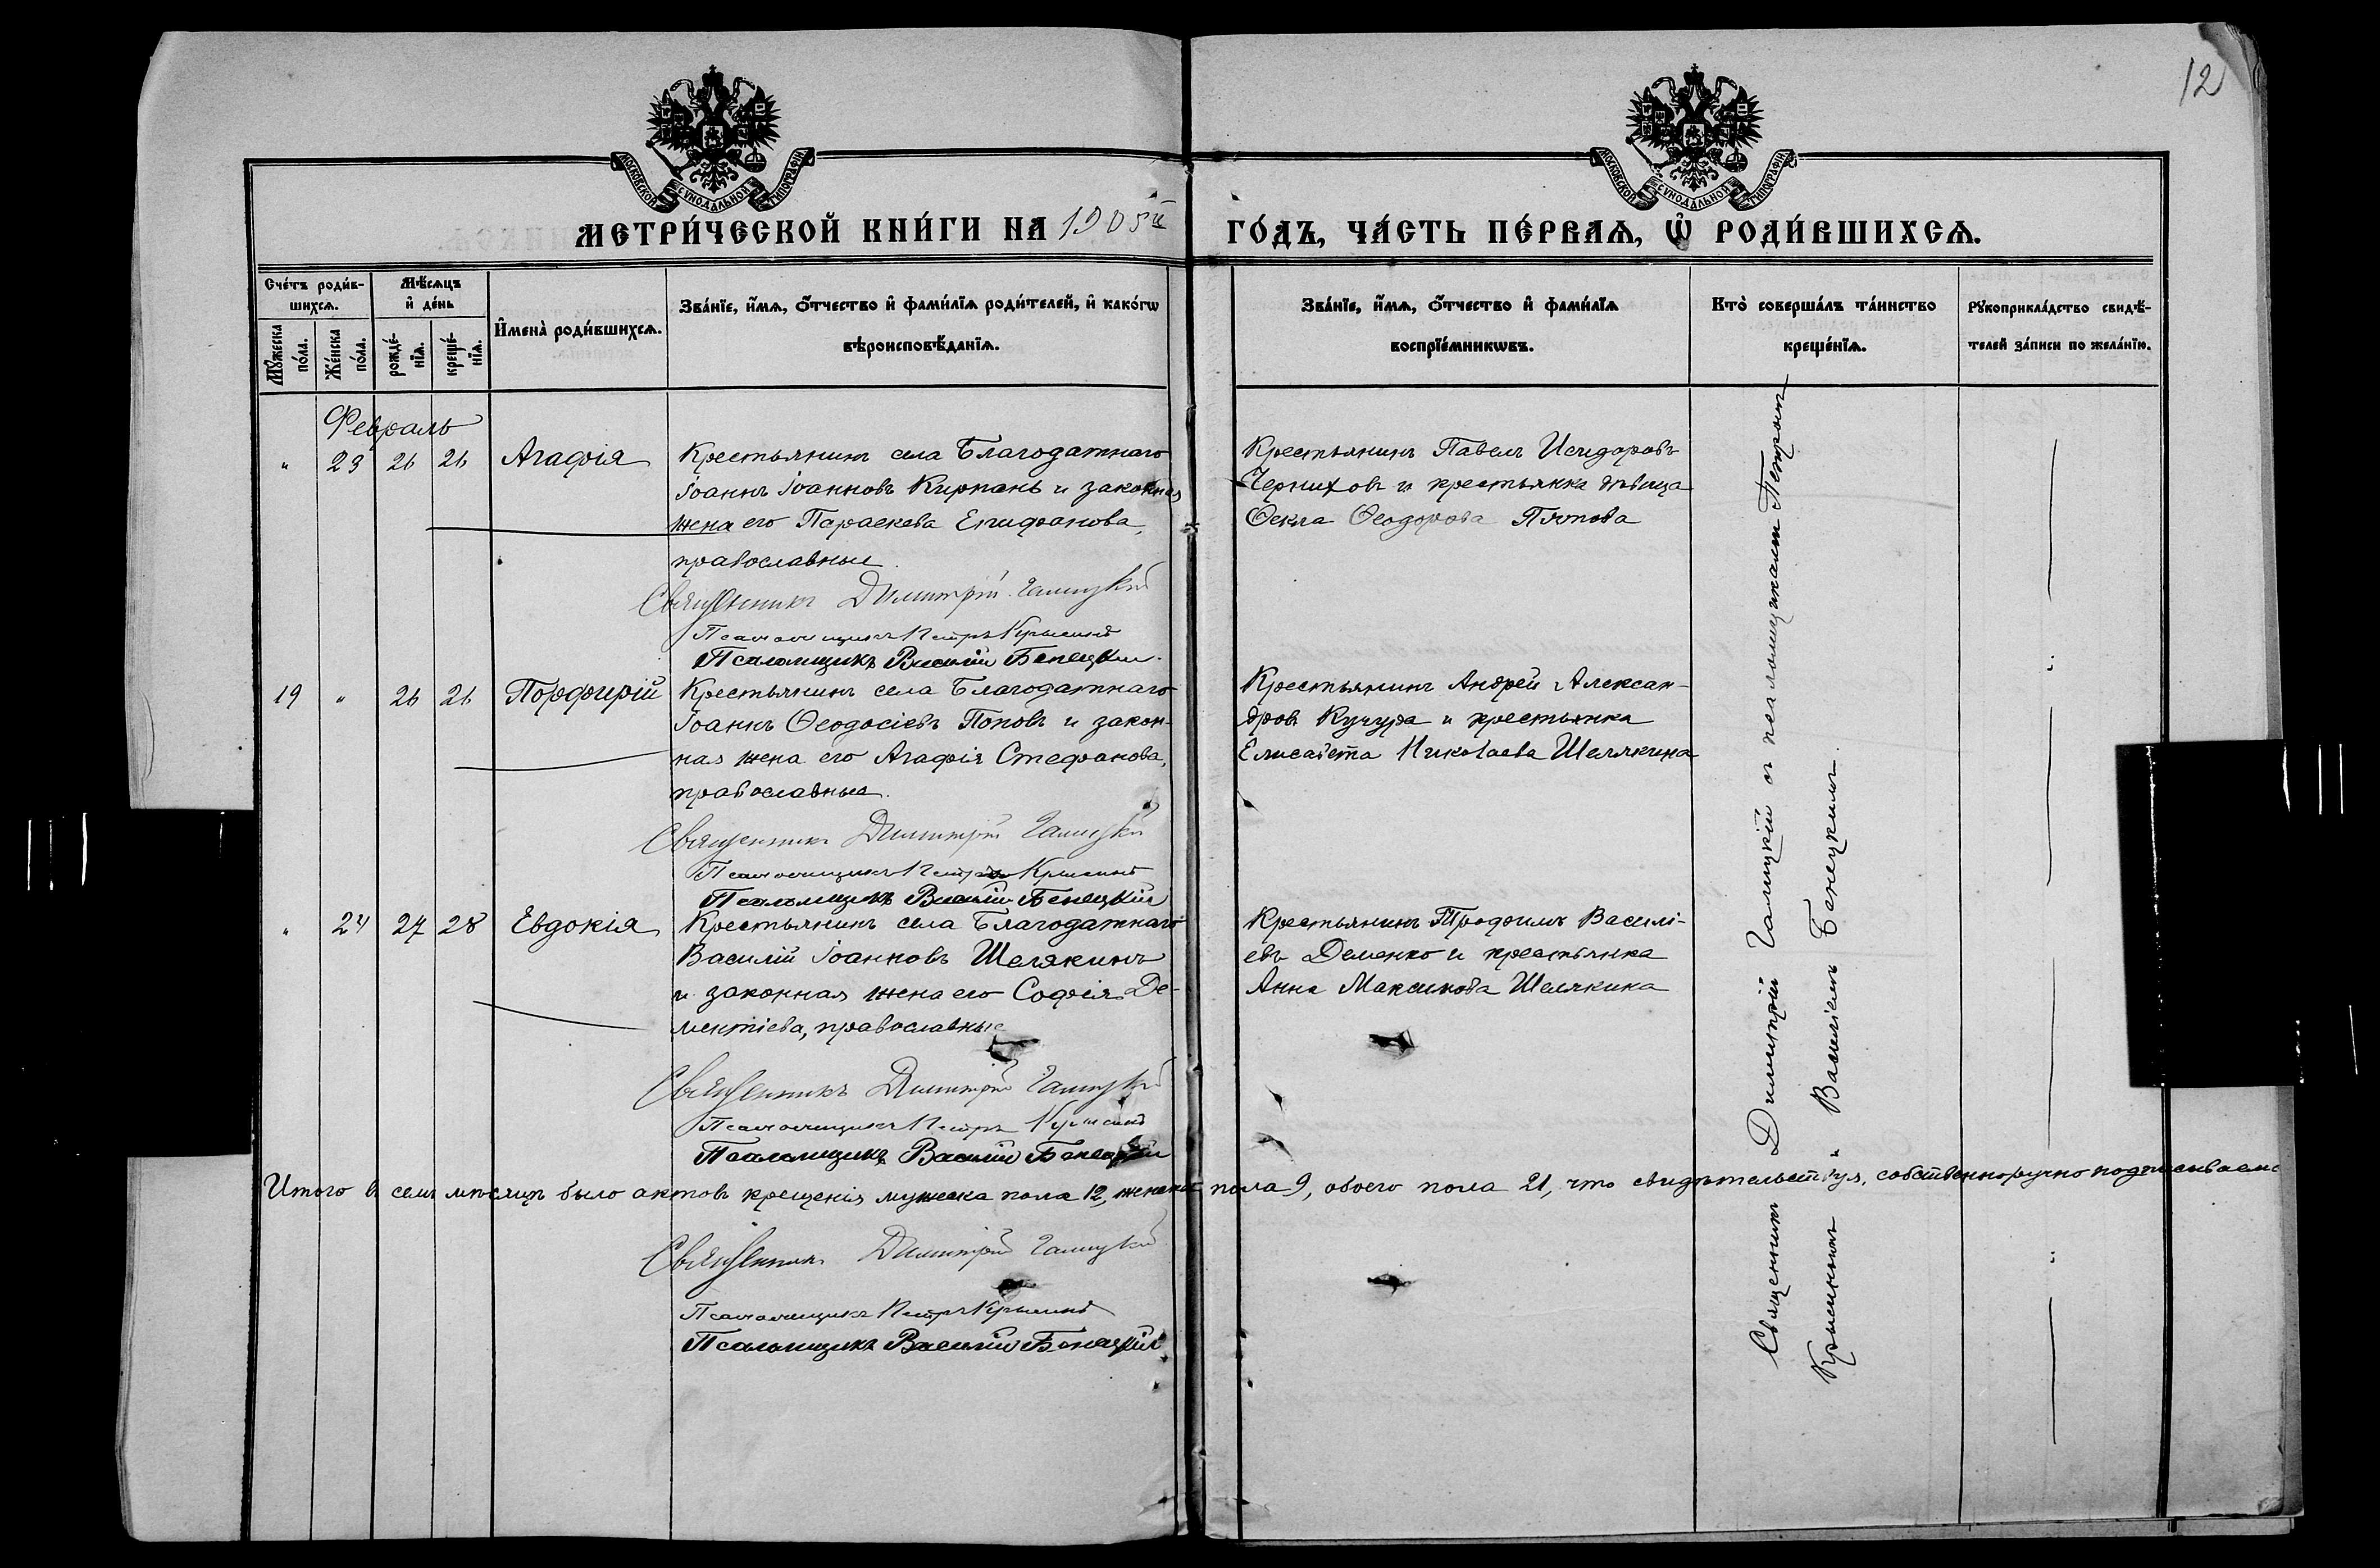 12
МОСКОВСКОЙ СѴНОДАЛЬНОЙ ТИПОГРАФІИ
МОСКОВСКОЙ СѴНОДАЛЬНОЙ ТИПОГРАФІИ
МЕТРИ́ЧЕСКОЙ КНИ́ГИ НА 1905й
ГО́ДЪ, ЧА́СТЬ ПЕ́РВАѦ, Ѡ҆ РОДИ́ВШИХСѦ.
Сче́тъ роди́в-
шихсѧ.
Мꙋ́жеска по́ла.
Же́нска по́ла.
Мѣ́сѧцъ
и҆ де́нь
рожде́-нїѧ.
креще́-нїѧ.
И҆мена̀ роди́вшихсѧ.
Зва́нїе, и҆́мѧ, ѻ҆́тчество и҆ фами́лїѧ роди́телей, и҆ како́гѡ
вѣроисповѣ́данїѧ.
Зва́нїе, и҆́мѧ, ѻ҆́тчество и҆ фами́лїѧ
воспрїе́мникѡвъ.
Кто̀ соверша́лъ та́инство
креще́нїѧ.
Рꙋкоприкла́дство свидѣ́-
телей за́писи по жела́нїю.
Февраль
" 23 26 26 Агафія
Крестьянинъ села Благодатнаго
Іоаннъ Іоанновъ Кирпань и законная
жена его Параскева Епифанова,
православные.
Священникъ Димитрій Галицкій
Псаломщикъ Петръ Крысинъ
Псаломщикъ Василій Бенецкій
Крестьянинъ Павелъ Исидоровъ
Черниховъ и крестьянка дѣвица
Ѳекла Ѳеодорова Пятова
19 " 26 26 Порфирій
Крестьянинъ села Благодатнаго
Іоаннъ Ѳеодосіевъ Поповъ и закон-
ная жена его Агафія Стефанова,
православные.
Священникъ Димитрій Галицкій
Псаломщикъ Петръ Крысинъ
Псаломщикъ Василій Бенецкій
Крестьянинъ Андрей Алексан-
дровъ Кучура и крестьянка
Елисавета Николаева Шелякина
" 24 27 28 Евдокія
Крестьянинъ села Благодатнаго
Василій Іоанновъ Шелякинъ
и законная жена его Софія Де-
ментіева, православные
Священникъ Димитрій Галицкій
Псаломщикъ Петръ Крысинъ
Псаломщикъ Василій Бенецкій
Крестьянинъ Трофимъ Василі-
евъ Деменко и крестьянка
Анна Максимова Шелякина
Священникъ Димитрій Галицкій съ псаломщиками Петромъ
Крысинымъ и Василіемъ Бенецкимъ.
Итого въ семъ мѣсяцѣ было актовъ крещенія мужеска пола 12, женска пола 9, обоего пола 21, что свидѣтельствуя, собственноручно подписываемъ
Священникъ Димитрій Галицкій
Псаломщикъ Петръ Крысинъ
Псаломщикъ Василій Бенецкій